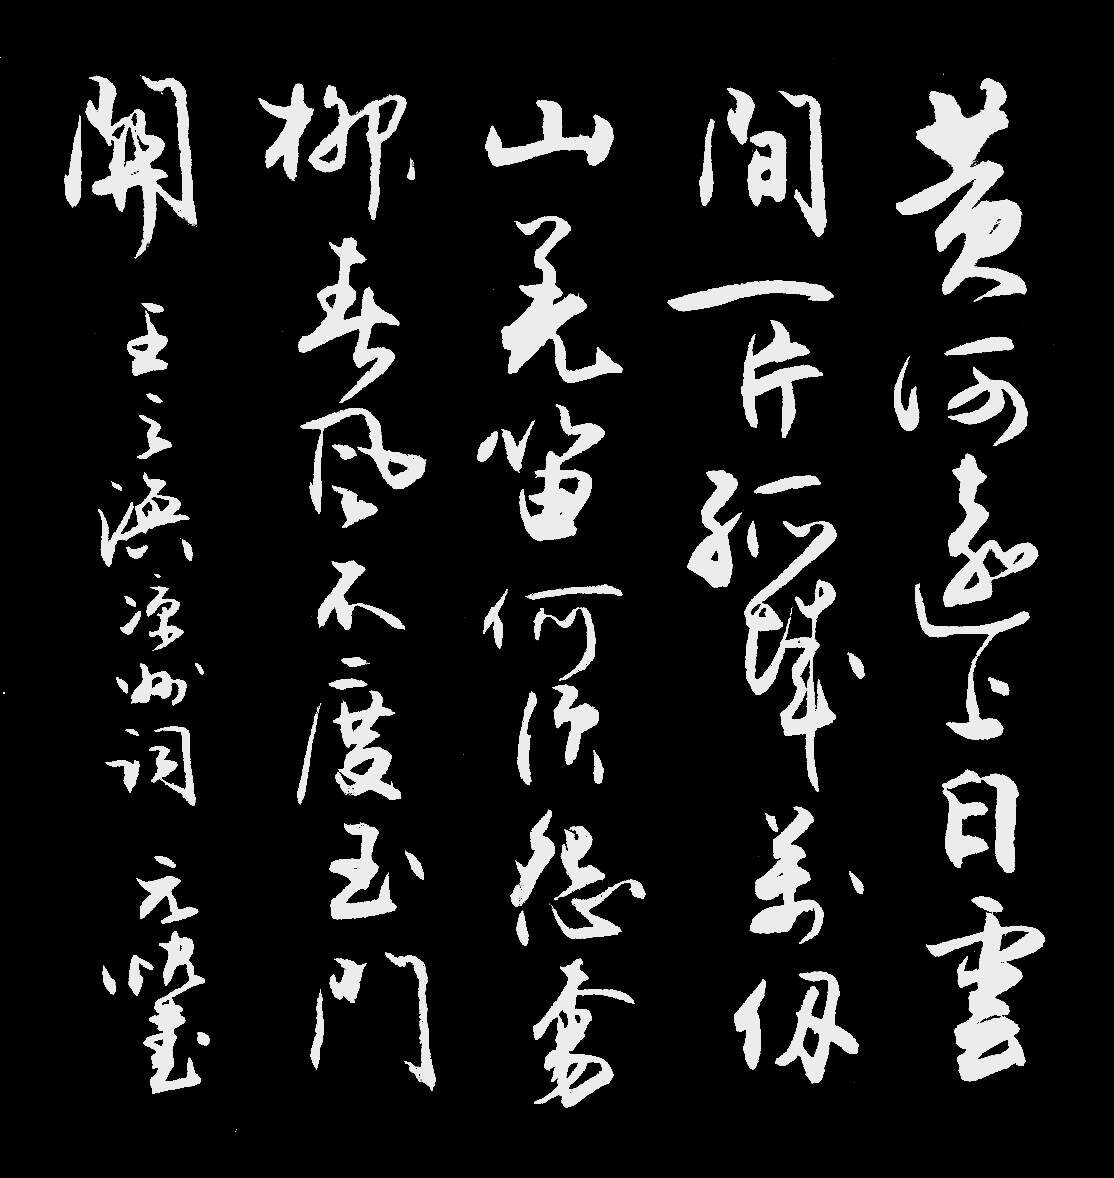 黄河遠上白雲
間一片孤城萬仞
山羌笛何須怨楊
柳春風不度玉門
關 王之渙凉州詞 元書